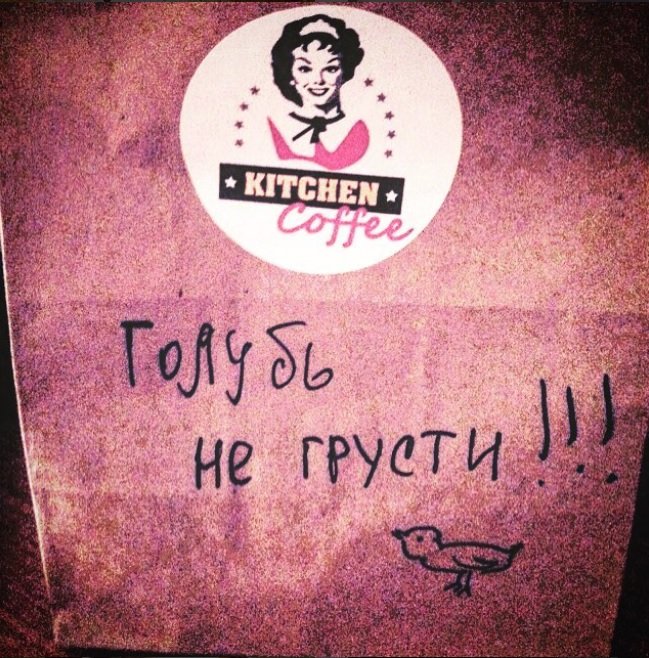 KITCHEN
Coffee
Голубь
не грусти!!!